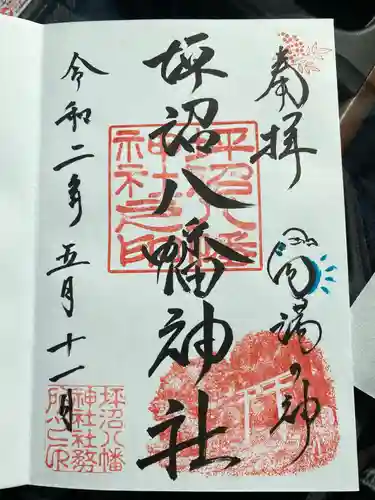 奉拝
田端の神
坪沼八幡神社
坪沼八幡
神社之印
令和二年五月十一日
坪沼八幡
神社社務
所之印